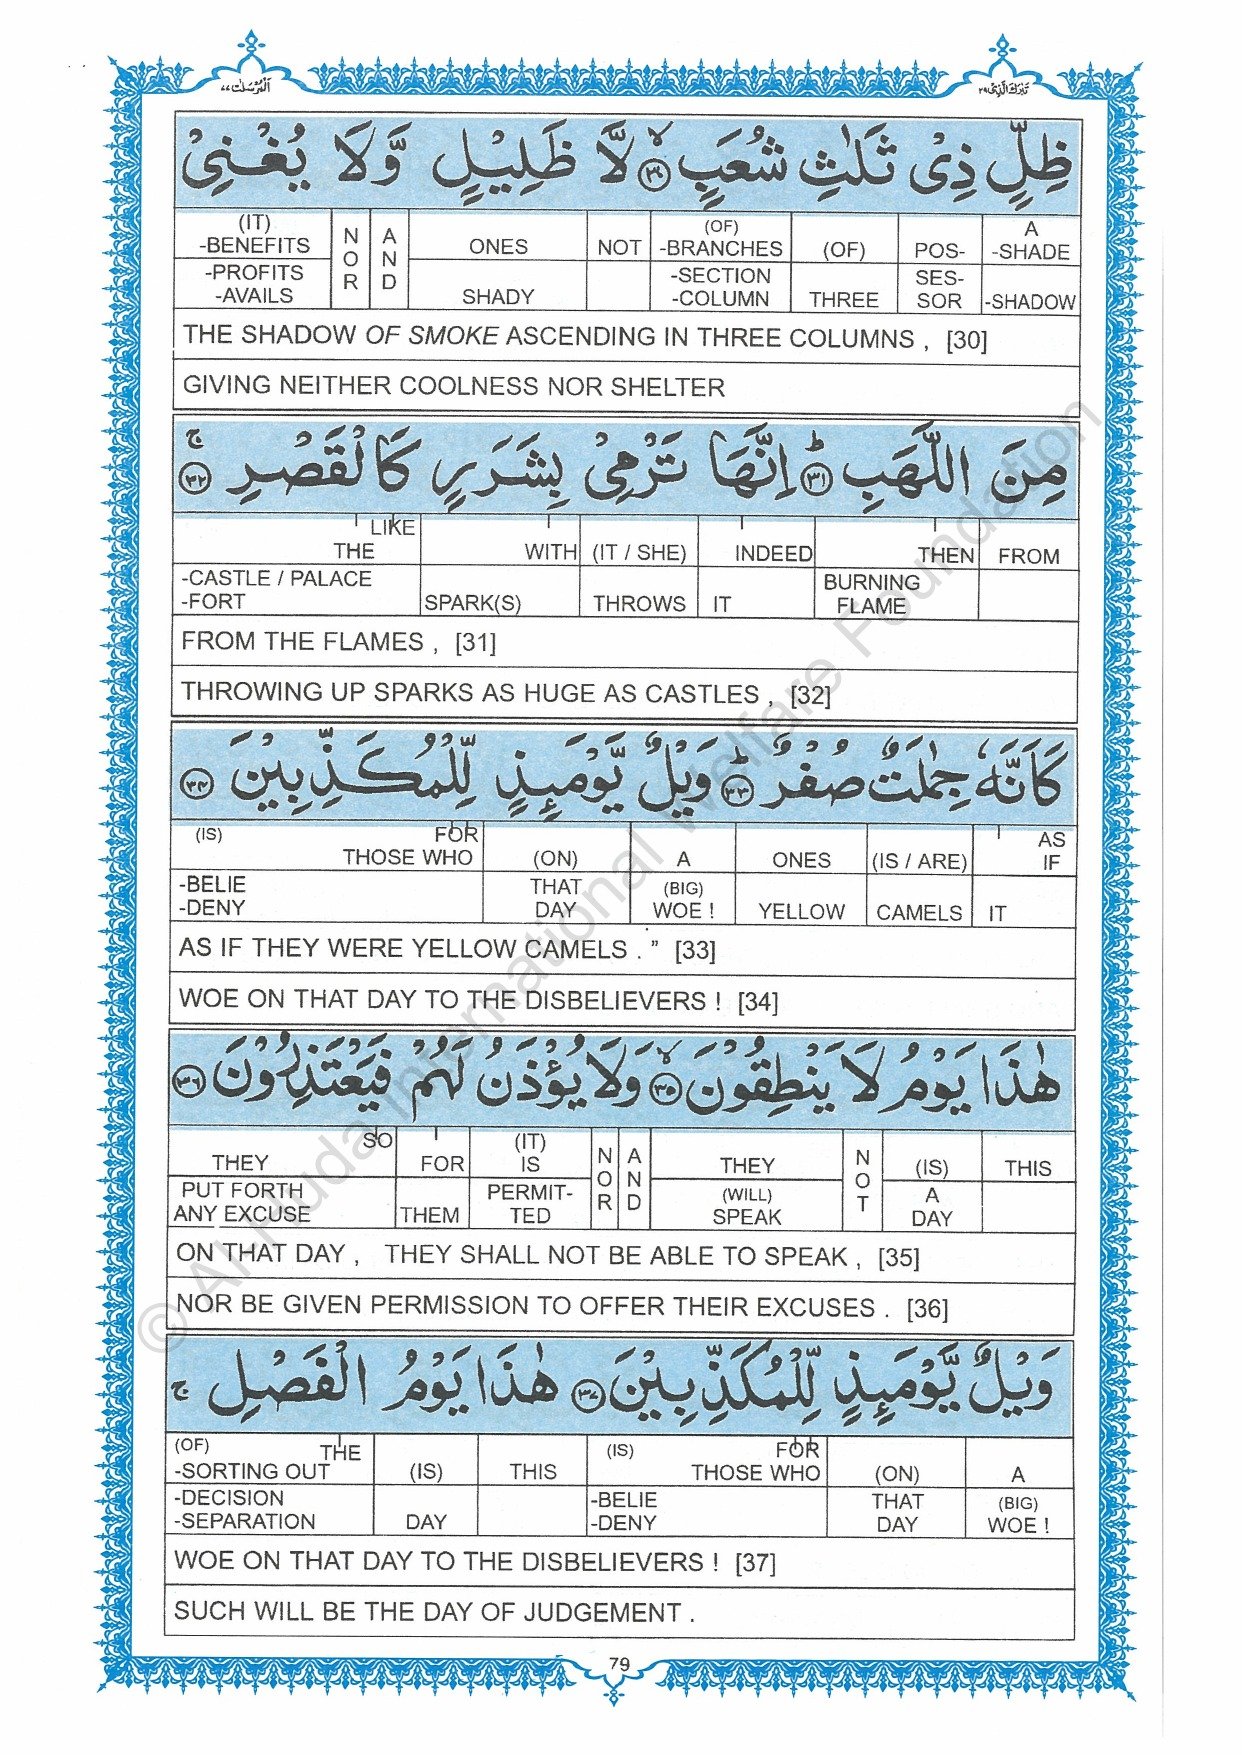 اَلْمُرْسَلٰت ٧٧
تَبٰرَكَ الَّذِیْ ٢٩
ظِلٍّ ذِیْ ثَلٰثِ شُعَبٍ ﴿٣٠﴾ لَّا ظَلِیْلٍ وَّلَا یُغْنِیْ
(IT) N A (OF) A
-BENEFITS O N ONES NOT -BRANCHES (OF) POS- -SHADE
-PROFITS R D -SECTION SES-
-AVAILS SHADY -COLUMN THREE SOR -SHADOW
THE SHADOW OF SMOKE ASCENDING IN THREE COLUMNS , [30]
GIVING NEITHER COOLNESS NOR SHELTER
مِنَ اللَّهَبِ ﴿٣١﴾ اِنَّهَا تَرْمِیْ بِشَرَرٍ كَالْقَصْرِ ﴿٣٢﴾ ج
LIKE
THE WITH (IT / SHE) INDEED THEN FROM
-CASTLE / PALACE BURNING
-FORT SPARK(S) THROWS IT FLAME
FROM THE FLAMES , [31]
THROWING UP SPARKS AS HUGE AS CASTLES , [32]
كَاَنَّهٗ جِمٰلَتٌ صُفْرٌ ﴿٣٣﴾ وَیْلٌ یَّوْمَىِٕذٍ لِّلْمُكَذِّبِیْنَ ﴿٣٤﴾
(IS) FOR AS
THOSE WHO (ON) A ONES (IS / ARE) IF
-BELIE THAT (BIG)
-DENY DAY WOE ! YELLOW CAMELS IT
AS IF THEY WERE YELLOW CAMELS . ” [33]
WOE ON THAT DAY TO THE DISBELIEVERS ! [34]
هٰذَا یَوْمُ لَا یَنْطِقُوْنَ ﴿٣٥﴾ وَلَا یُؤْذَنُ لَهُمْ فَیَعْتَذِرُوْنَ ﴿٣٦﴾
SO (IT) N A N
THEY FOR IS O N THEY O (IS) THIS
PUT FORTH PERMIT- R D (WILL) T A
ANY EXCUSE THEM TED SPEAK DAY
ON THAT DAY , THEY SHALL NOT BE ABLE TO SPEAK , [35]
NOR BE GIVEN PERMISSION TO OFFER THEIR EXCUSES . [36]
وَیْلٌ یَّوْمَىِٕذٍ لِّلْمُكَذِّبِیْنَ ﴿٣٧﴾ هٰذَا یَوْمُ الْفَصْلِ ج
(OF) THE (IS) FOR
-SORTING OUT (IS) THIS THOSE WHO (ON) A
-DECISION -BELIE THAT (BIG)
-SEPARATION DAY -DENY DAY WOE !
WOE ON THAT DAY TO THE DISBELIEVERS ! [37]
SUCH WILL BE THE DAY OF JUDGEMENT .
79
© Al-Huda International Welfare Foundation